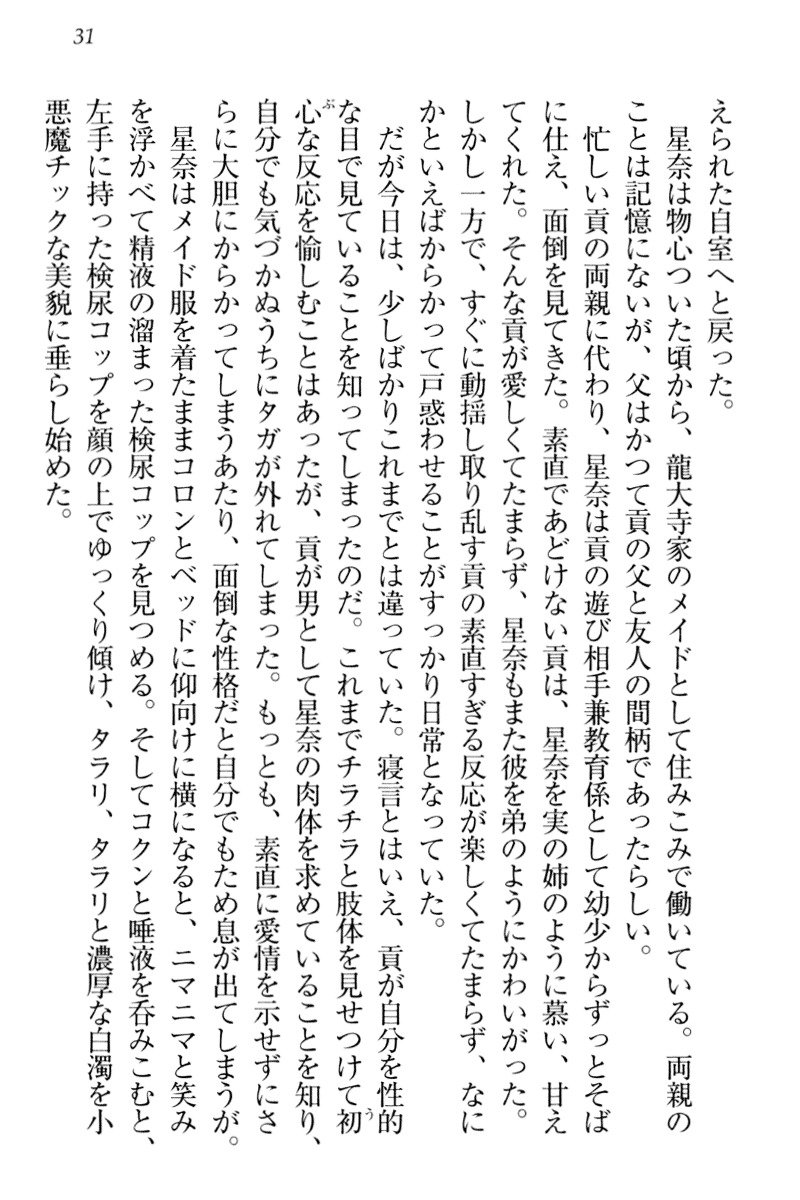 31
えられた自室へと戻った。
星奈は物心ついた頃から、龍大寺家のメイドとして住みこみで働いている。両親の
ことは記憶にないが、父はかつて貢の父と友人の間柄であったらしい。
忙しい貢の両親に代わり、星奈は貢の遊び相手兼教育係として幼少からずっとそば
に仕え、面倒を見てきた。素直であどけない貢は、星奈を実の姉のように慕い、甘え
てくれた。そんな貢が愛しくてたまらず、星奈もまた彼を弟のようにかわいがった。
しかし一方で、すぐに動揺し取り乱す貢の素直すぎる反応が楽しくてたまらず、なに
かといえばからかって戸惑わせることがすっかり日常となっていた。
だが今日は、少しばかりこれまでとは違っていた。寝言とはいえ、貢が自分を性的
な目で見ていることを知ってしまったのだ。これまでチラチラと肢体を見せつけて初
心な反応を愉しむことはあったが、貢が男として星奈の肉体を求めていることを知り、
自分でも気づかぬうちにタガが外れてしまった。もっとも、素直に愛情を示せずにさ
らに大胆にからかってしまうあたり、面倒な性格だと自分でもため息が出てしまうが。
星奈はメイド服を着たままコロンとベッドに仰向けに横になると、ニマニマと笑み
を浮かべて精液の溜まった検尿コップを見つめる。そしてコクンと唾液を呑みこむと、
左手に持った検尿コップを顔の上でゆっくり傾け、タラリ、タラリと濃厚な白濁を小
悪魔チックな美貌に垂らし始めた。